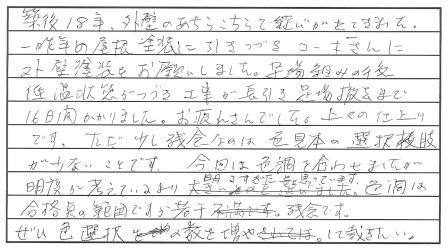 築後18年、外壁のあちらこちらで粧いがでてきました。
一昨年の屋根塗装に引きつづきコーキさんに
外壁塗装をお願いしました。足場組みの後
低温状態がつづき工事が長引き足場撤去まで
16日間かかりました。お疲れさんでした。上々の仕上り
です。ただ少し残念なのは色見本の選択枝肢
が少ないことです。今回は色調を合わせましたが
明度が考えているより明るすぎたと思っています。色調は
合格点の範囲ですが若干残念です。
ぜひ色選択の数を増やして下さい。